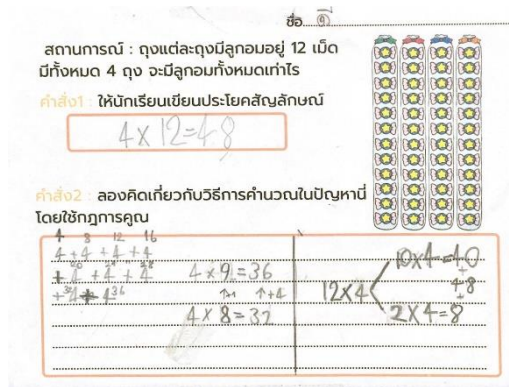 ชื่อ
สถานการณ์ : ถุงแต่ละถุงมีลูกอมอยู่ 12 เม็ด
มีทั้งหมด 4 ถุง จะมีลูกอมทั้งหมดเท่าไร
คำสั่ง1 : ให้นักเรียนเขียนประโยคสัญลักษณ์
4 x 12 = 48
คำสั่ง2 : ลองคิดเกี่ยวกับวิธีการคำนวณในปัญหานี้
โดยใช้กฎการคูณ
4 8 12 16
4 + 4 + 4 + 4
+ 4 + 4 + 4
+ 4 + 4 36
4 x 9 = 36
↑+1 ↑+4
4 x 8 = 32
12x4
10x4=40
+
48
+
2x4=8